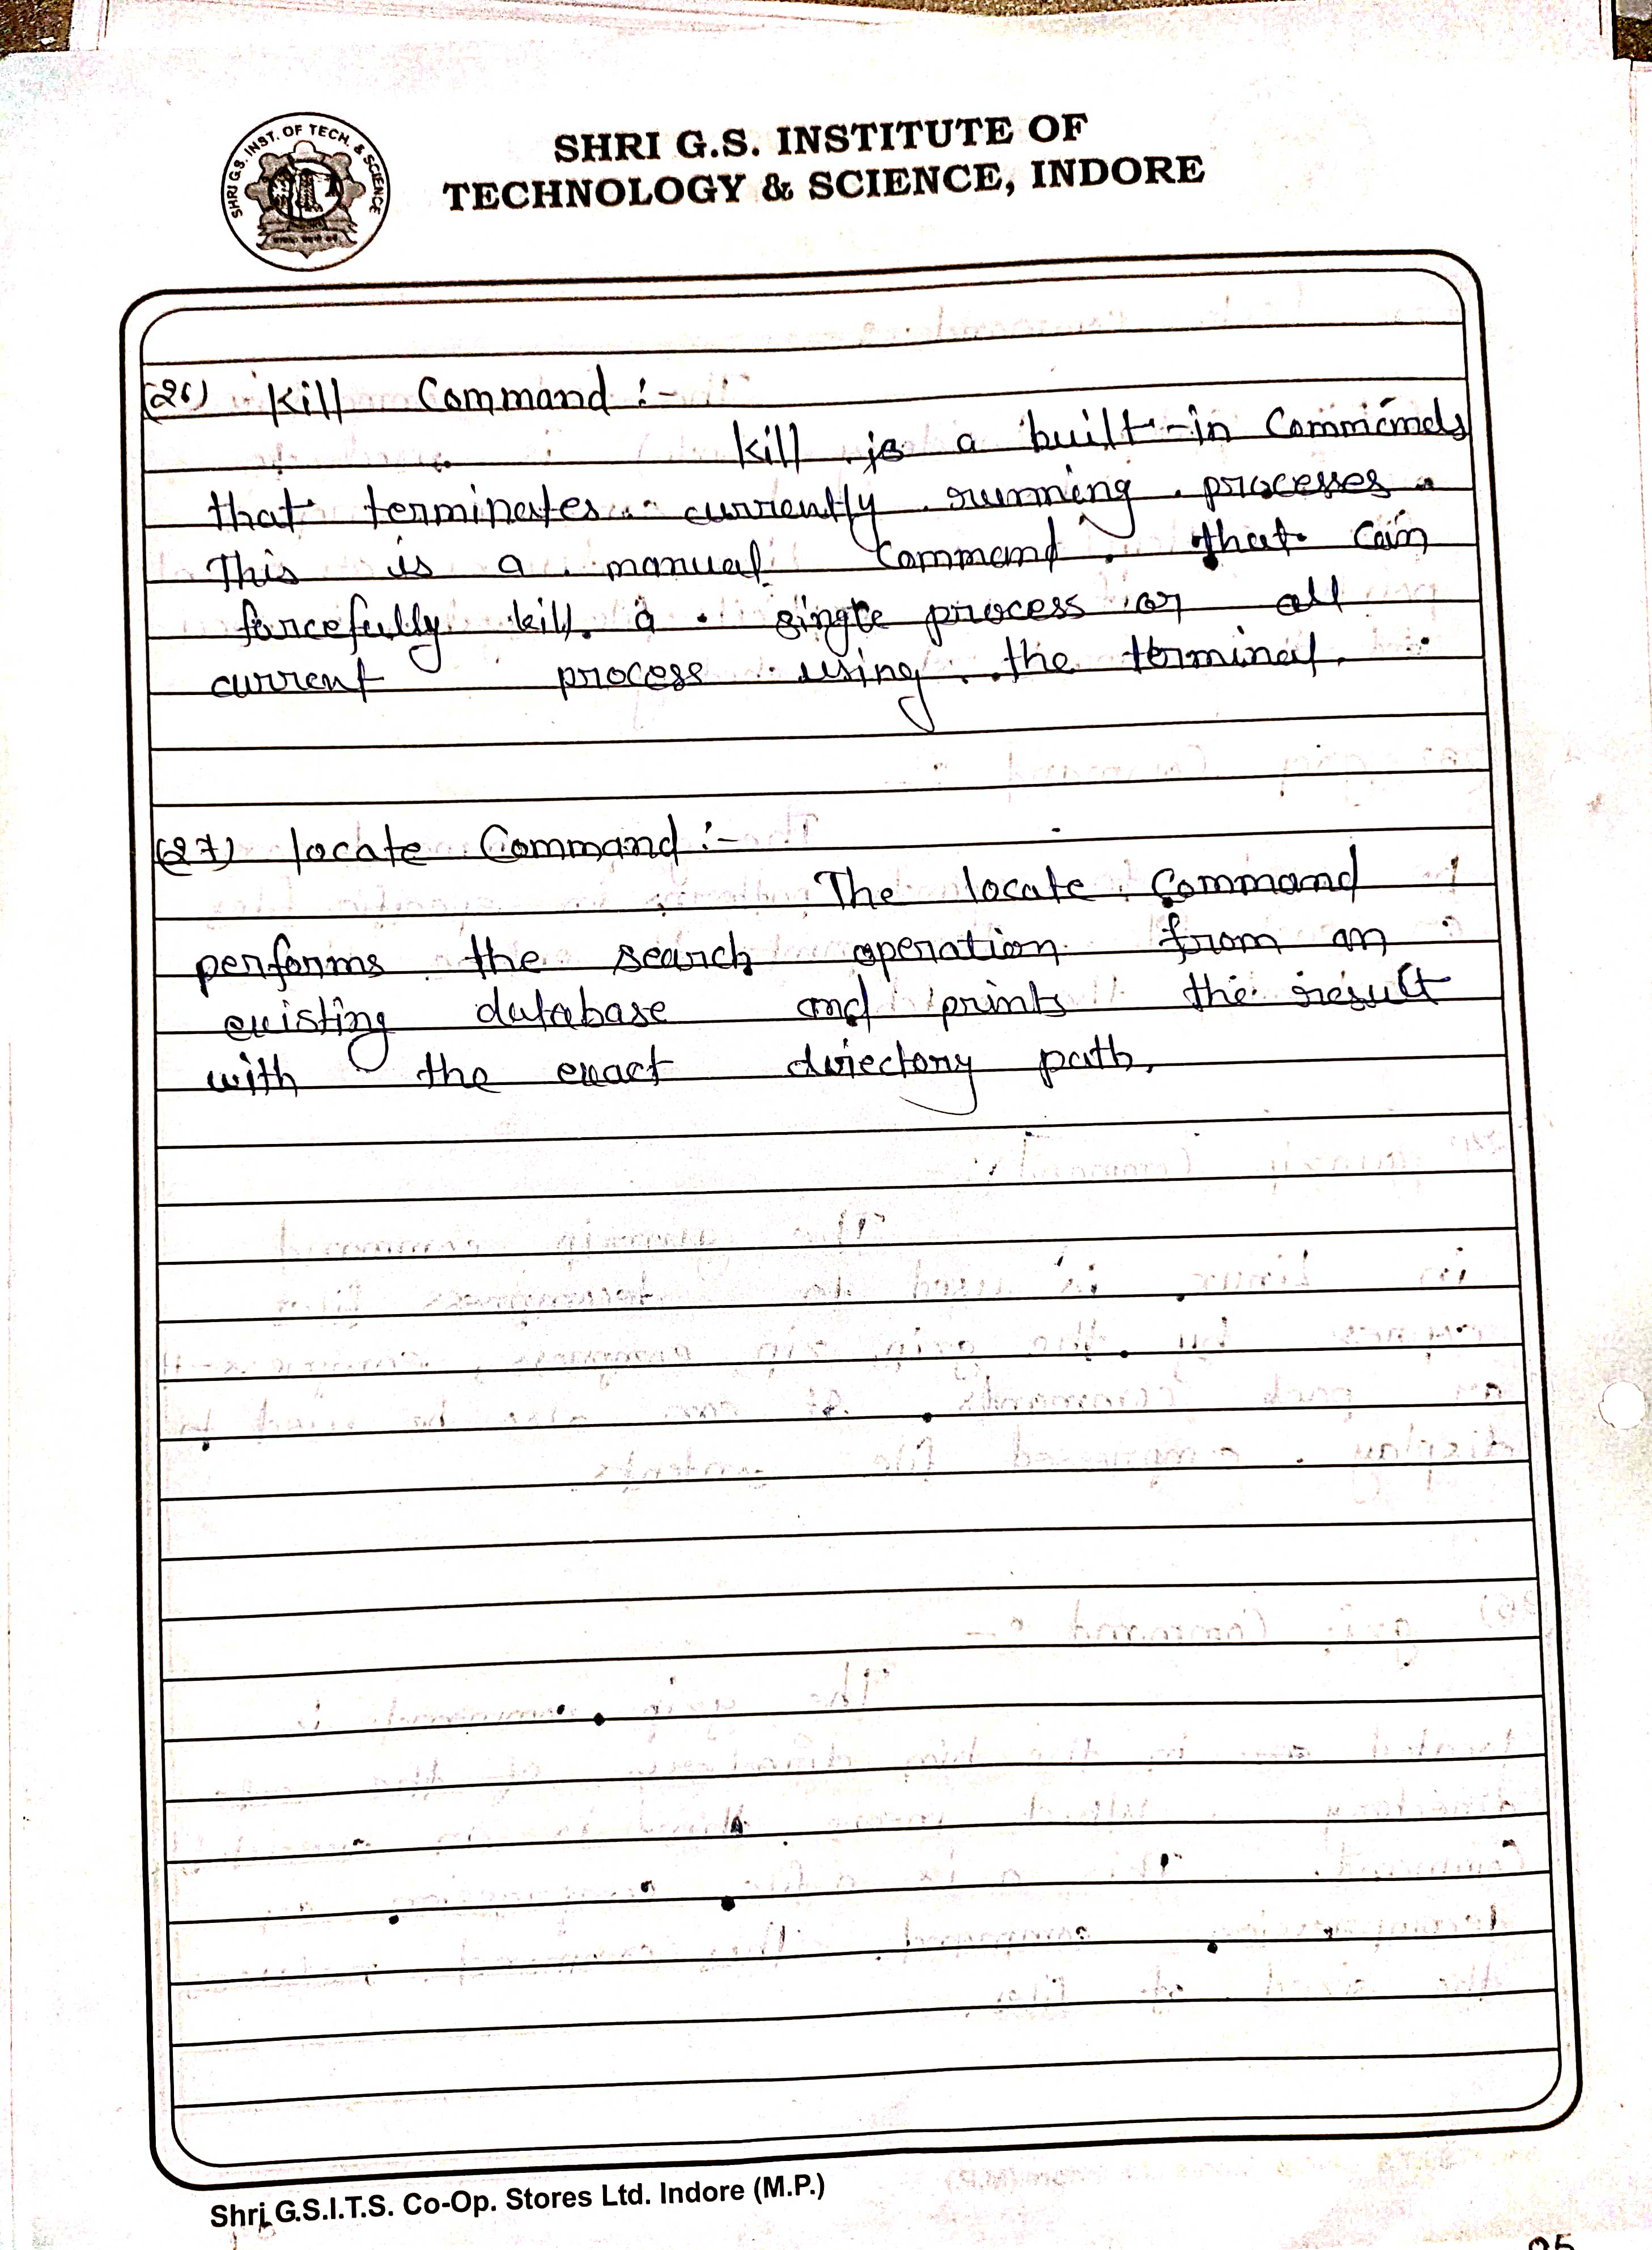 SHRI G.S. INST. OF TECH. & SCIENCE
SHRI G.S. INSTITUTE OF
TECHNOLOGY & SCIENCE, INDORE
(26) Kill Command :-
Kill is a built-in Commands
that terminates currently running processes.
This is a manual Command that can
forcefully kill a single process or all
current process using the terminal.
(27) locate Command :-
The locate Command
performs the search operation from an
existing database and prints the result
with the exact directory path.
Shri G.S.I.T.S. Co-Op. Stores Ltd. Indore (M.P.)